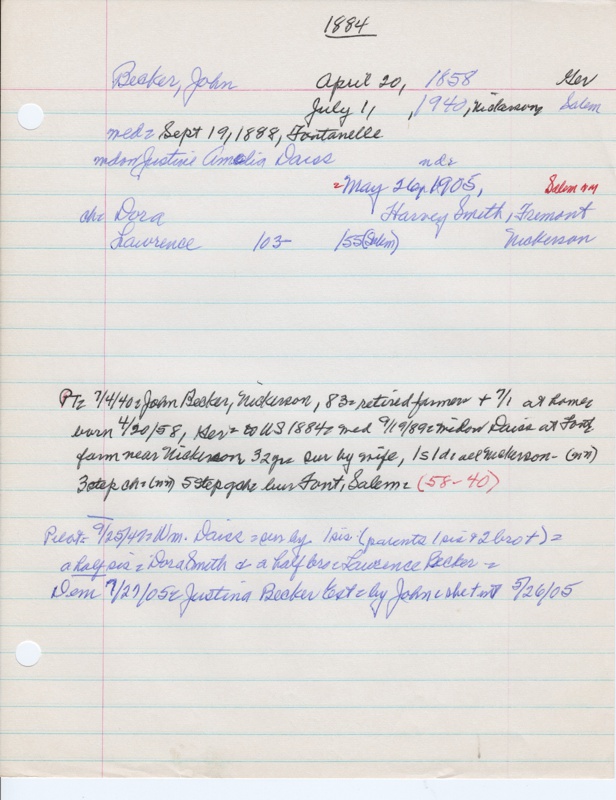 1884
Becker, John April 20, 1858 Ger
July 1, , 1940, Nickerson, Salem
med= Sept 19, 1888, Fontanelle
wdow Justine Amelia Daiss ndr
= May 26, 1905, Salem
ch= Dora Harvey Smith, Fremont
Lawrence 103- 155 (Salem) Nickerson
7/4/40= John Becker, Nickerson, 83= retired farmer + 7/1 at home=
born 4/20/58, Ger= to US 1884= med 9/19/89= widow Daiss at Font=
farm near Nickerson 32 yr= sur by wife, 1s 1d= all Nickerson- (nn)
3 step ch= (nn) 5 step gch= bur Font, Salem= (58-40)
Pilot= 9/25/47= Wm. Daiss= sur by 1 sis (parents 1 sis & 2 bro +)=
a half sis= Dora Smith & a half bro= Lawrence Becker=
Dem 7/27/05= Justina Becker Est= by John= she + int 5/26/05